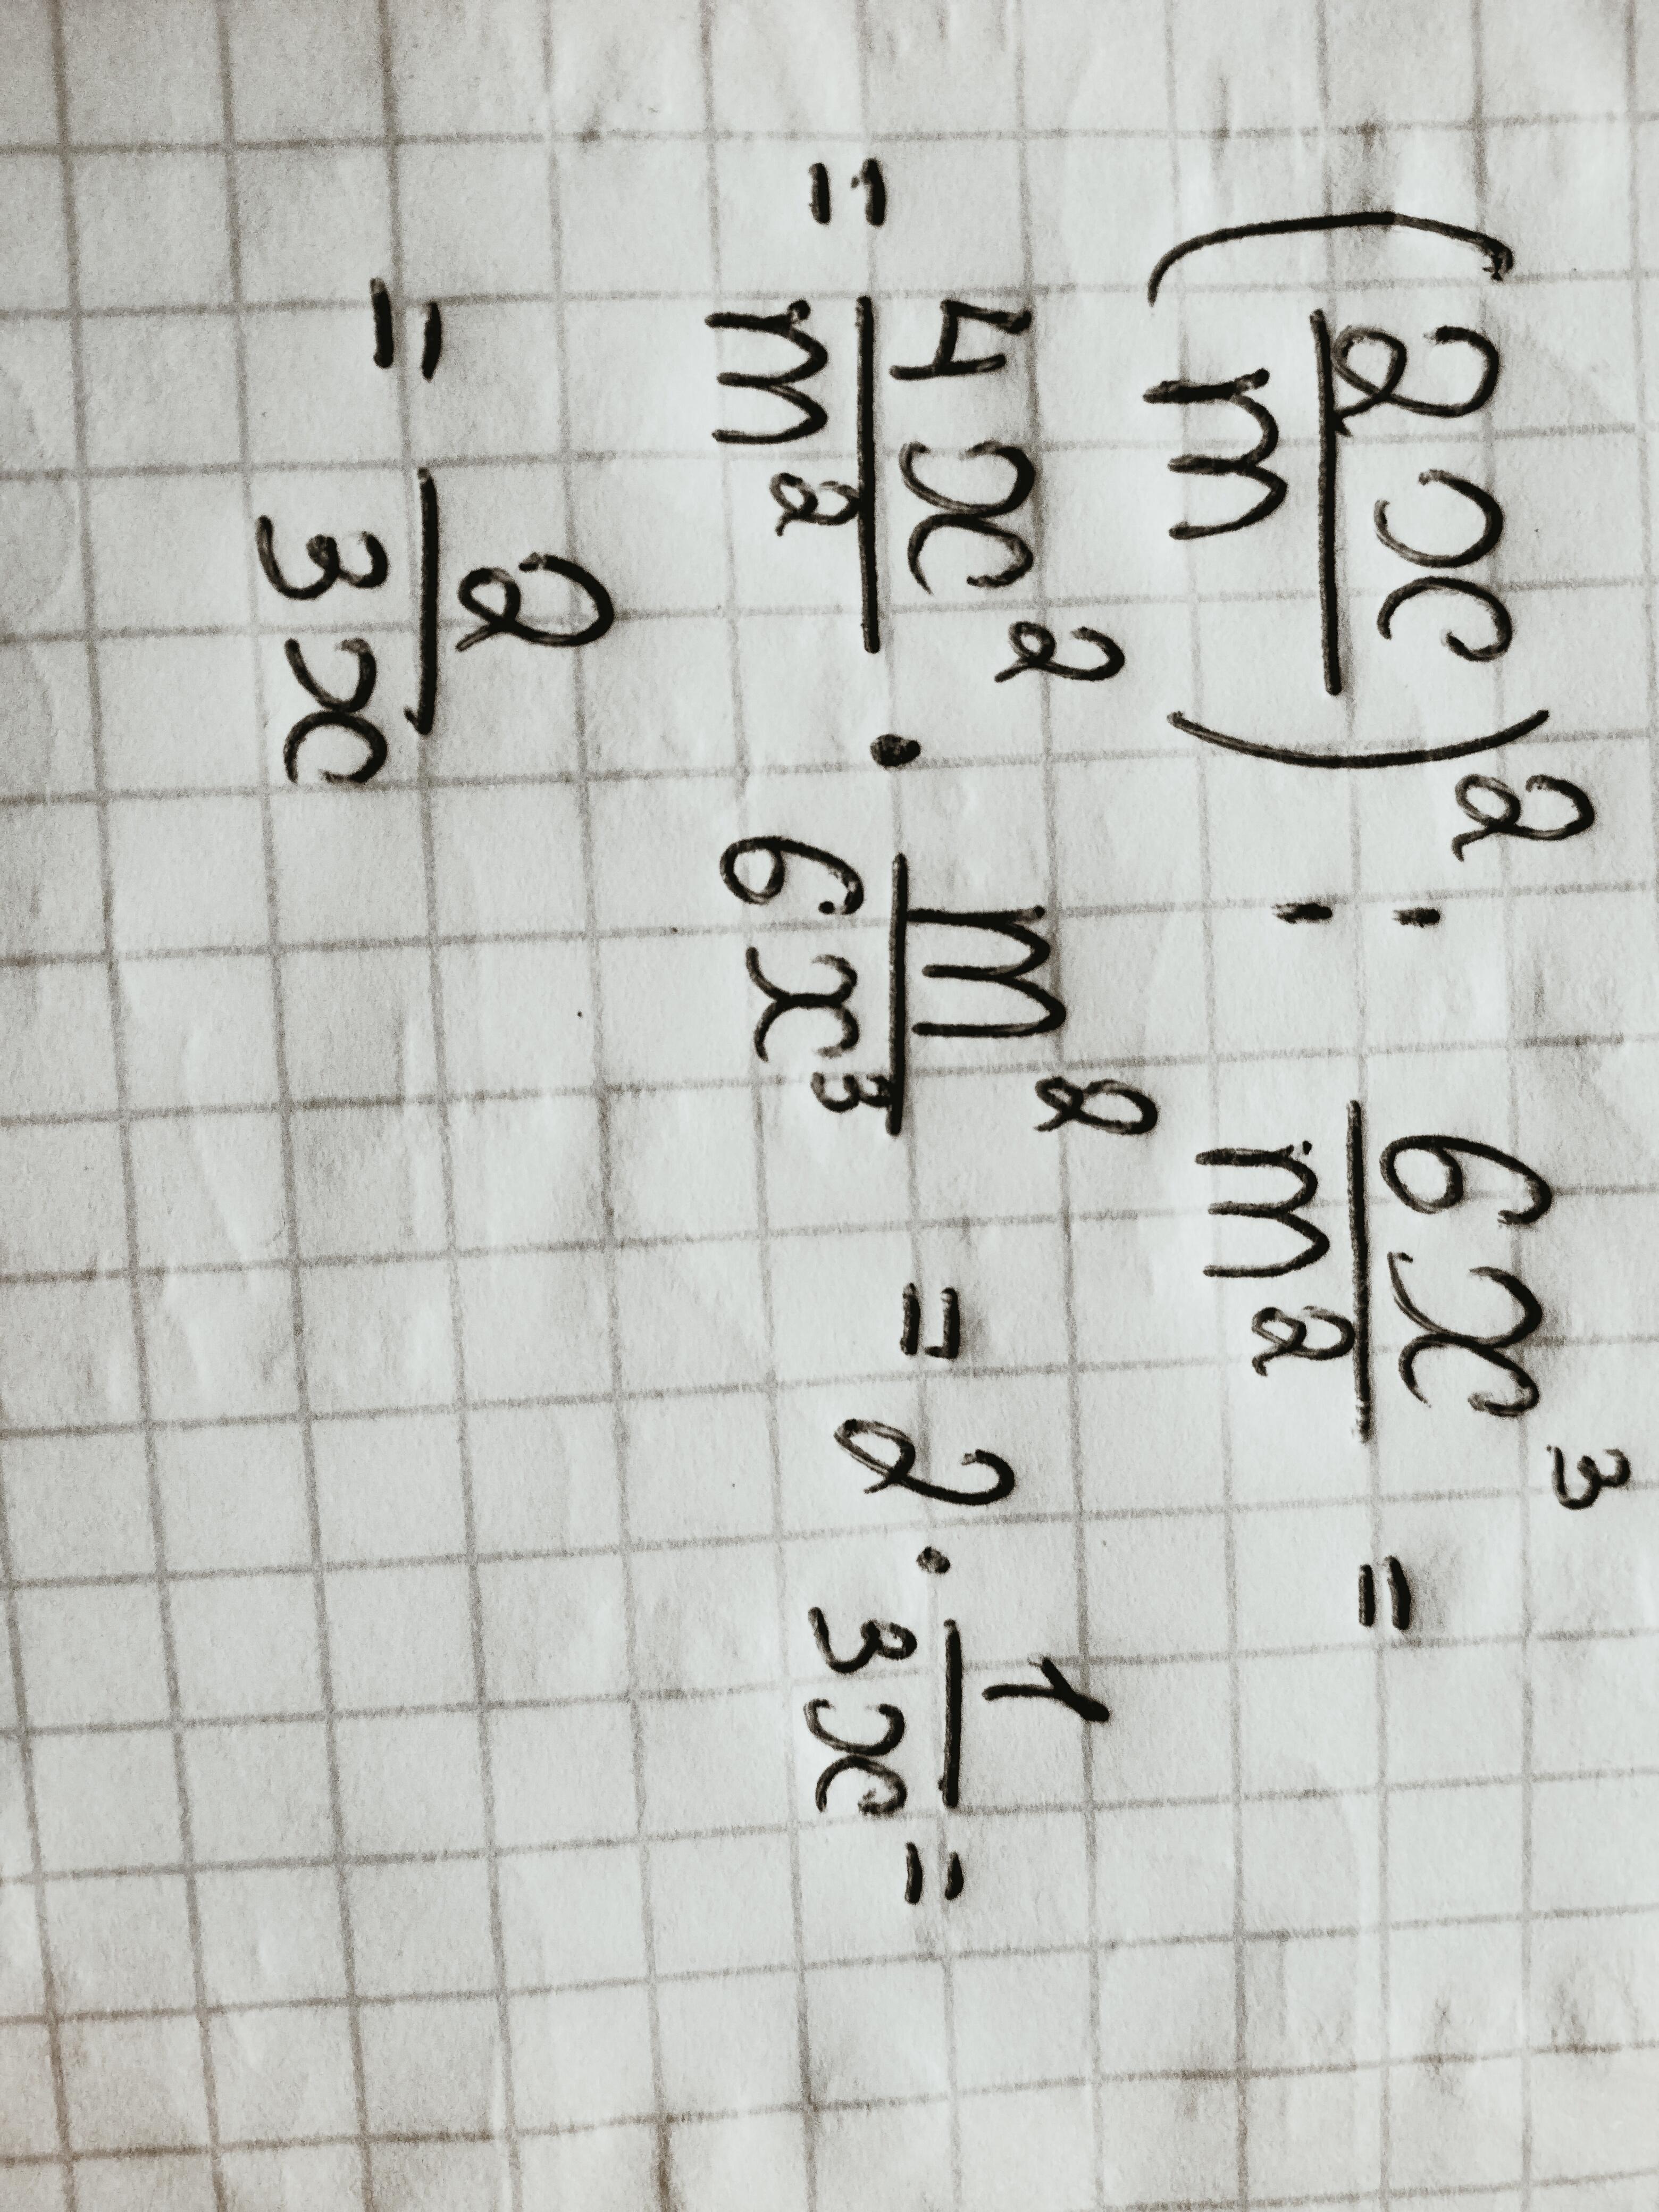 (2x/m)² : 6x³/m² =
= 4x²/m² · m²/6x³ = 2 · 1/3x =
= 2/3x